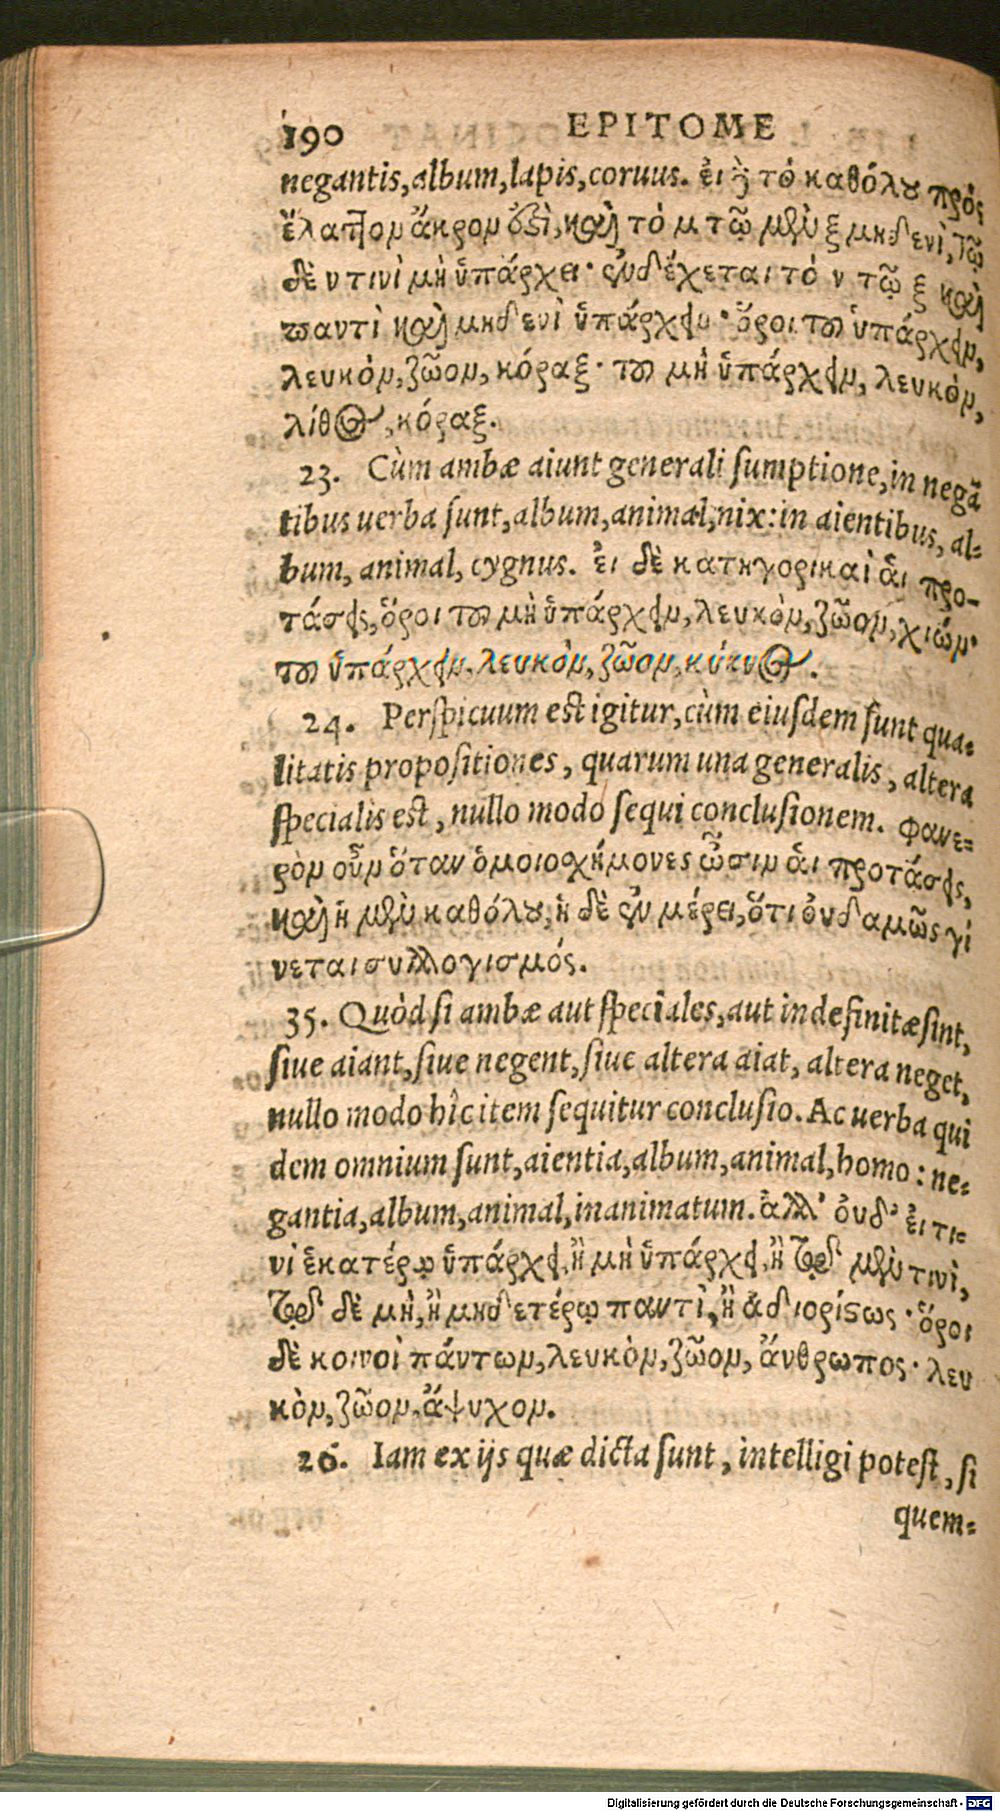 190 EPITOME
negantis, album, lapis, coruus. ἐι δὲ τὸ καθόλου πρὸς
ἔλαττον ἄκρον ὅξὶ, καὶ τὸ μ τῷ μὲν ξ μηδενὶ, τῷ
δὲ ν τινὶ μὴ ὑπάρχει· ἐνδέχεται τὸ ν τῷ ξ καὶ
παντὶ καὶ μηδενὶ ὑπάρχειν· ὅροι τοῦ ὑπάρχειν,
λευκὸν, ζῶον, κόραξ· τοῦ μὴ ὑπάρχειν, λευκὸν,
λίθος, κόραξ.
23. Cùm ambæ aiunt generali sumptione, in negã
tibus uerba sunt, album, animal, nix: in aientibus, al-
bum, animal, cygnus. ἐι δὲ κατηγορικαὶ ἁι προ-
τάσεις, ὅροι τοῦ μὴ ὑπάρχειν, λευκὸν, ζῶον, χιών·
τοῦ ὑπάρχειν, λευκὸν, ζῶον, κύκνος.
24. Perspicuum est igitur, cùm eiusdem sunt qua-
litatis propositiones, quarum una generalis, altera
specialis est, nullo modo sequi conclusionem. φανε-
ρὸν οὖν ὅταν ὁμοιοσχήμονες ὦσιν ἁι προτάσεις,
καὶ ἡ μὲν καθόλου, ἡ δὲ ἐν μέρει, ὅτι ὀυδαμῶς γί
νεται συλλογισμός.
35. Quòd si ambæ aut speciales, aut indefinitæ sint,
siue aiant, siue negent, siue altera aiat, altera neget,
nullo modo hîc item sequitur conclusio. Ac uerba qui
dem omnium sunt, aientia, album, animal, homo: ne-
gantia, album, animal, inanimatum. ἀλλ' ὀυδ' ἐι τι-
νὶ ἑκατέρῳ ὑπάρχει, ἢ μὴ ὑπάρχει, ἢ τῷ μὲν τινὶ,
τῷ δὲ μὴ, ἢ μηδετέρῳ παντὶ, ἢ ἀδιορίστως· ὅροι
δὲ κοινοὶ πάντων, λευκὸν, ζῶον, ἄνθρωπος· λευ
κὸν, ζῶον, ἄψυχον.
26. Iam ex ijs quæ dicta sunt, intelligi potest, si
quem-
Digitalisierung gefördert durch die Deutsche Forschungsgemeinschaft - DFG